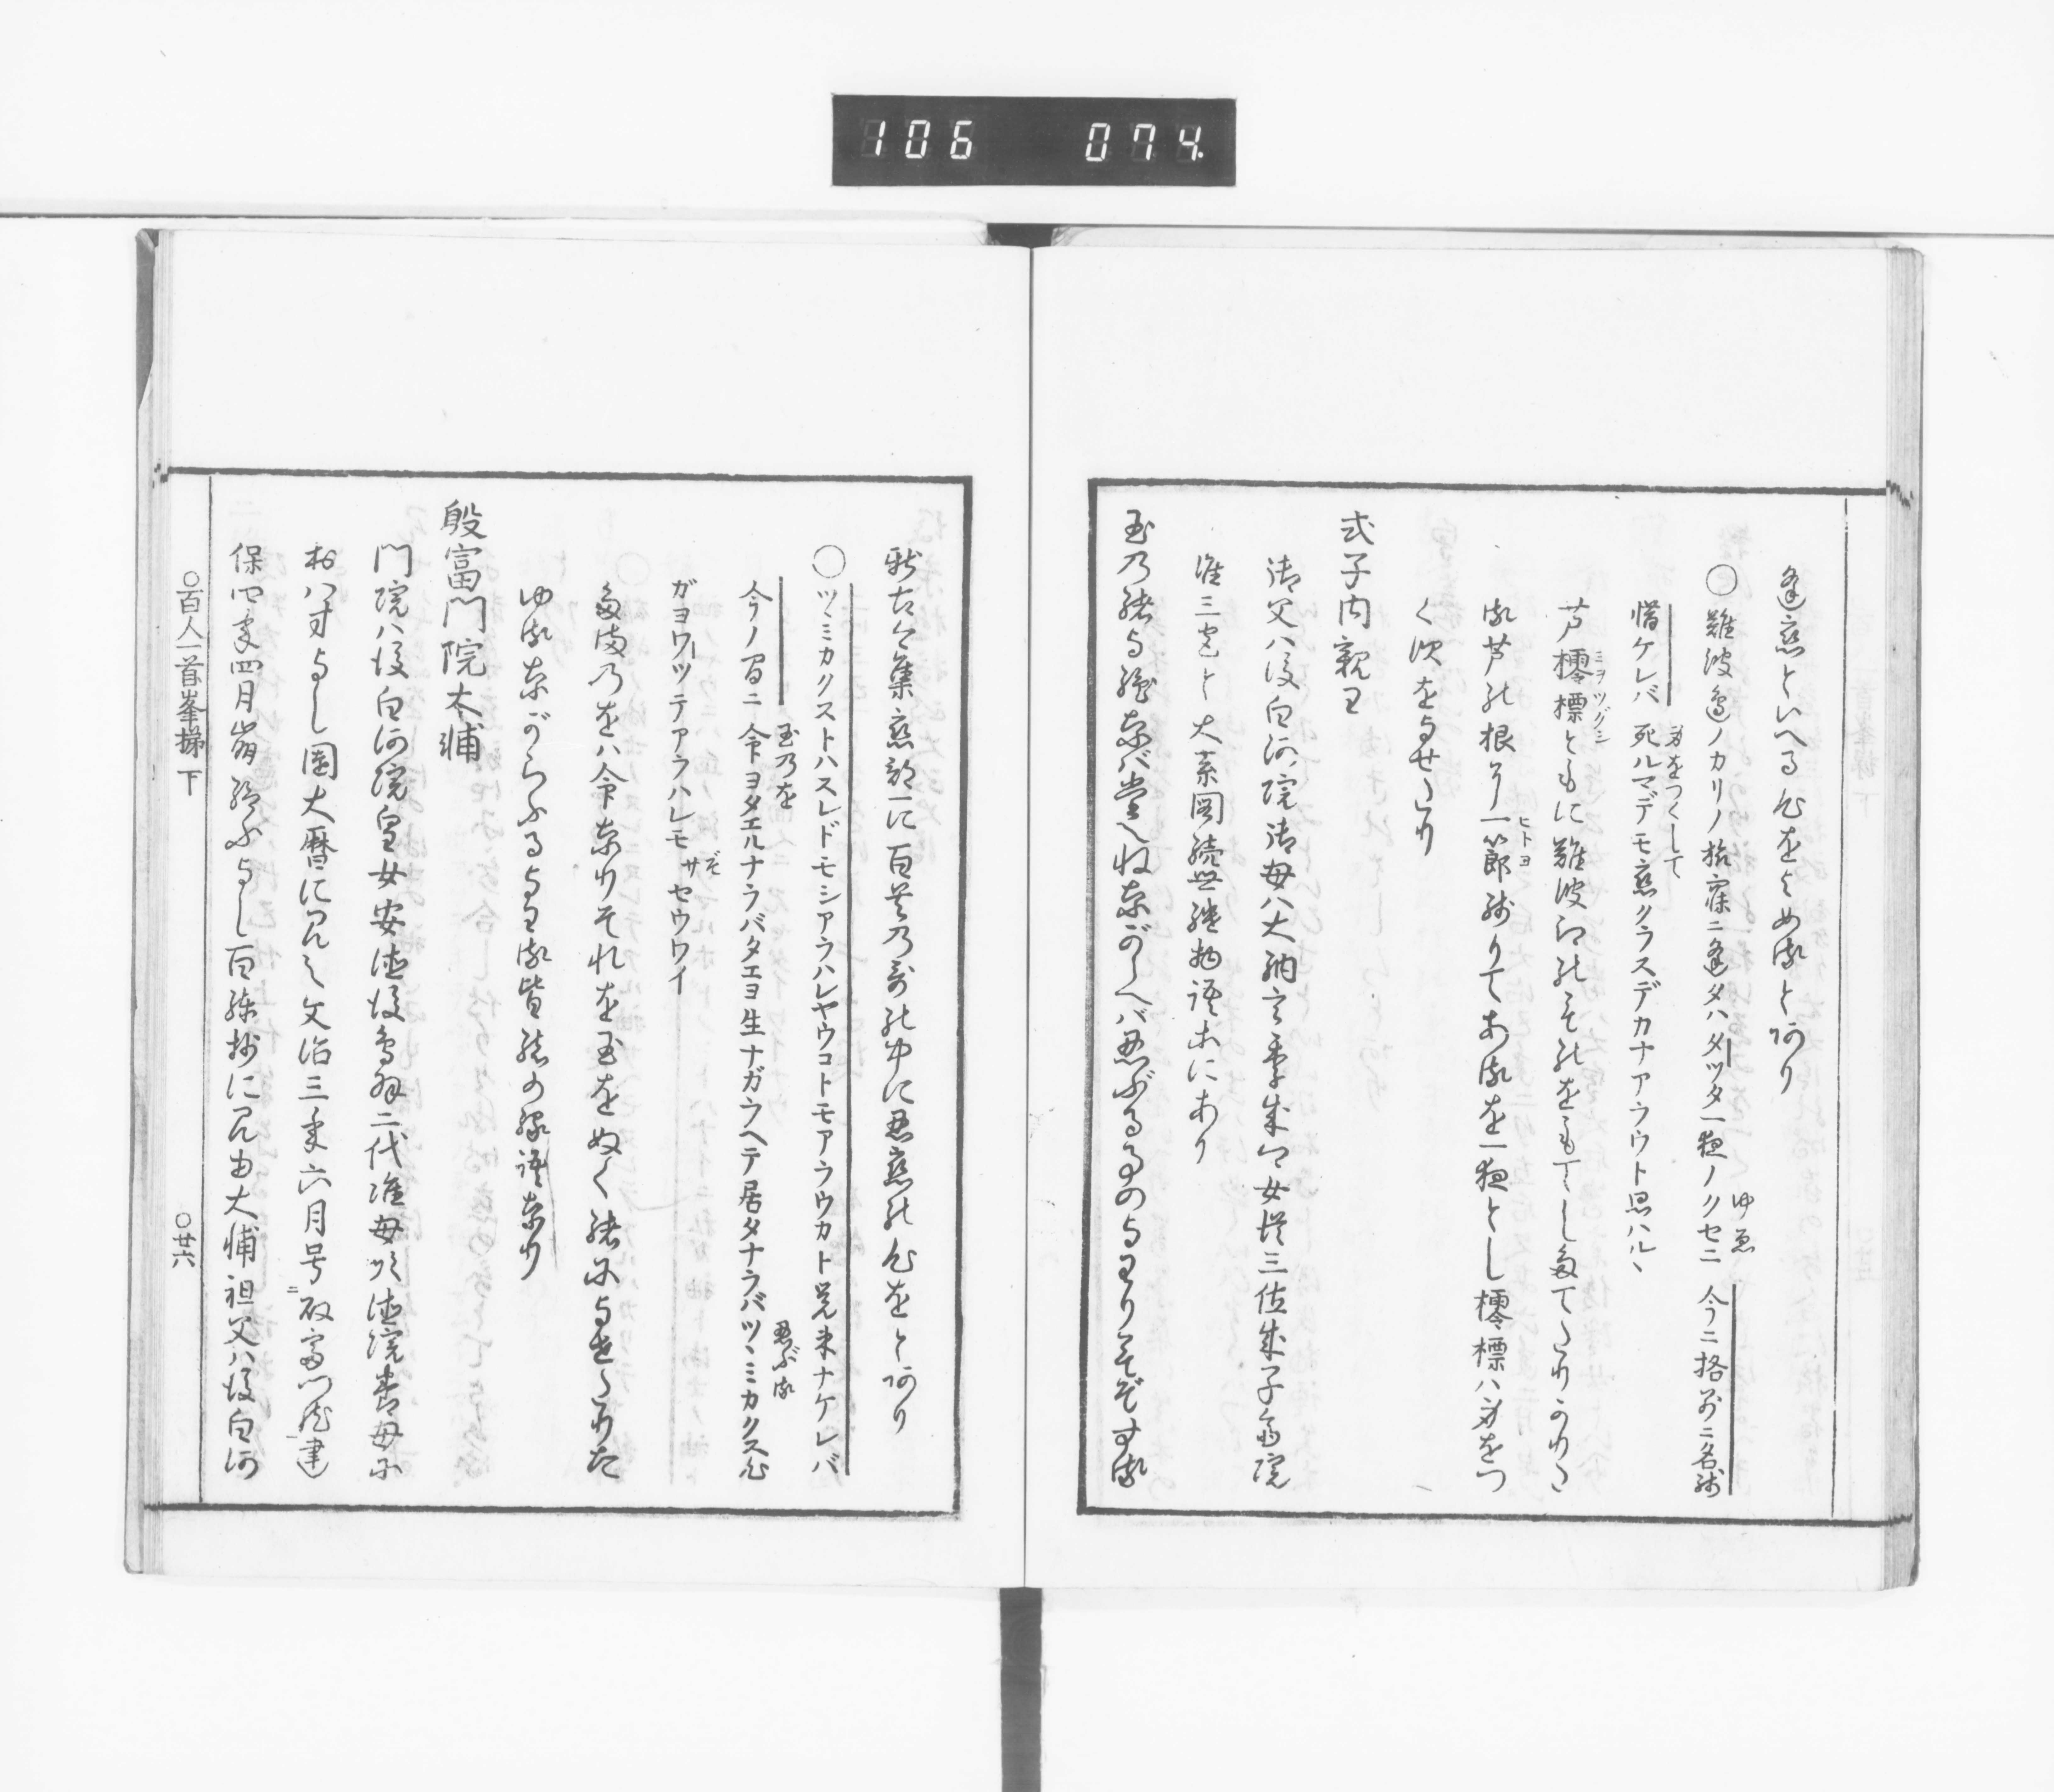 106 074
逢恋といへる心をよめるとあり
○難波邊ノカリノ旅寐ニ逢タハタツタ一夜ノクセニ 今ニ格別ニ名残
ゆゑ
惜ケレバ 死ルマデモ恋クラスデカナアラウト思ハルヽ
身をつくして
芦澪標ともに難波江の
ミヲツグシ
芦の根を一節残りてあるを一夜とし澪標ハ身をつ
ヒトヨ
くすをよせたり
式子内親王
御父ハ後白河院御母ハ大納言季成卿女従三位成子斎院
准三宮と大系図続世継物語等にあり
玉の緒よ絶なば絶ねながらへば忍ぶることのよわりもぞする
新古今集恋部一に百首の哥の中に忍恋の心をとあり
○ツヽミカクストハスレドモシアラハレヤウコトモアラウカト覚束ナケレバ
今ノ間ニ 命ヨタエルナラバタエヨ生ナガラヘテ居タナラバツヽミカクス心
玉乃を
忍ぶる
ガヨワツテアラハレモ サセウワイ
ぞ
玉の緒ハ命なりそれを玉をぬく緒によせたりた
ゆるながらふるよわる皆緒の縁語なり
殷富門院大輔
門院ハ後白河院皇女安徳後鳥羽二代准母順徳院養母に
おハすよし園大暦に見ゆ文治三年六月号殷富門院建
保四年四月崩給ふよし百練抄に見ゆ大輔祖父ハ後白河
○百人一首峯梯 下
○廿六